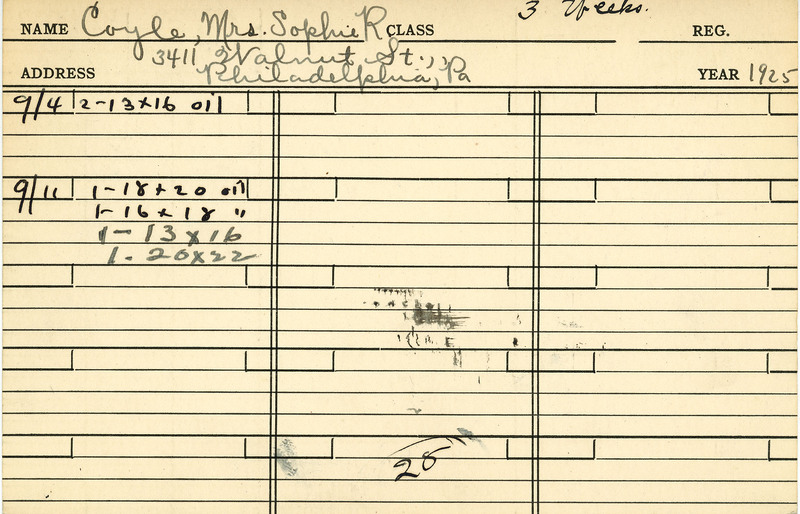 3 Weeks.
NAME Coyle, Mrs. Sophie R CLASS REG.
3411 Walnut St.,
ADDRESS Philadelphia, Pa YEAR 1925
9/4 2-13x16 oil
9/11 1-18x20 oil
1-16x18 "
1-13x16
1-20x22
28